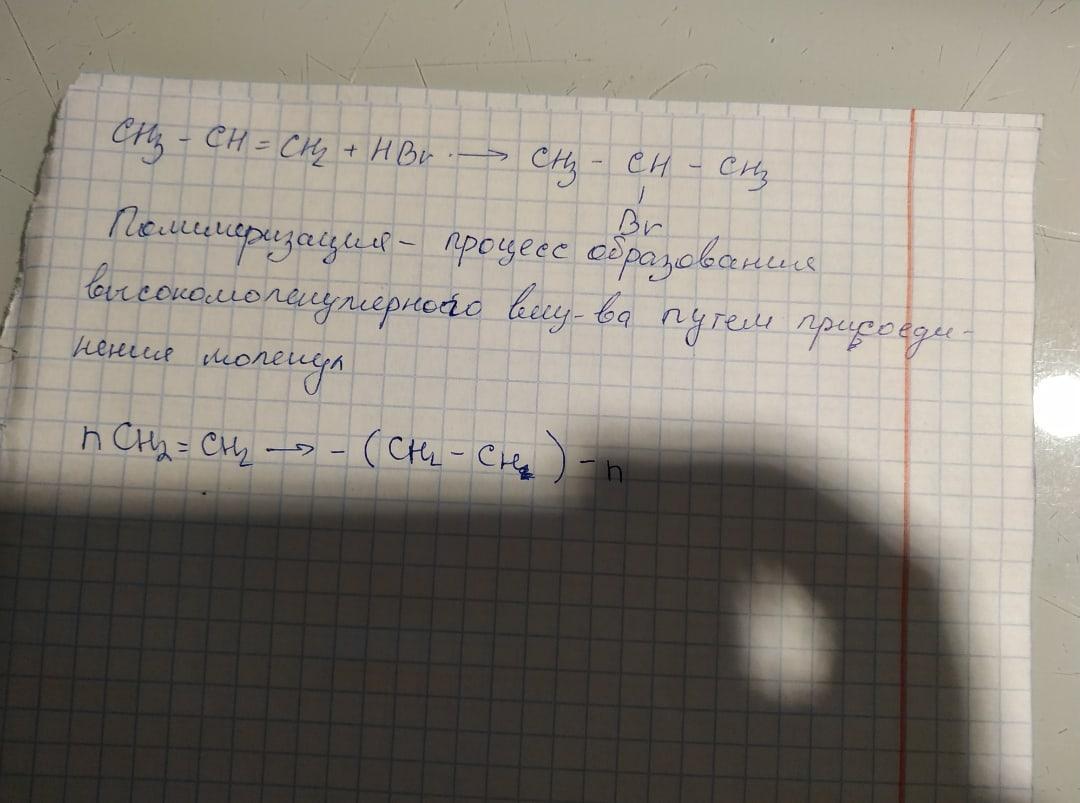 CH3 - CH = CH2 + HBr → CH3 - CH - CH3
Br
Полимеризация - процесс образования
высокомолекулярного вещ-ва путем присоеди-
нения молекул
n CH2 = CH2 → - ( CH2 - CH2 ) - n